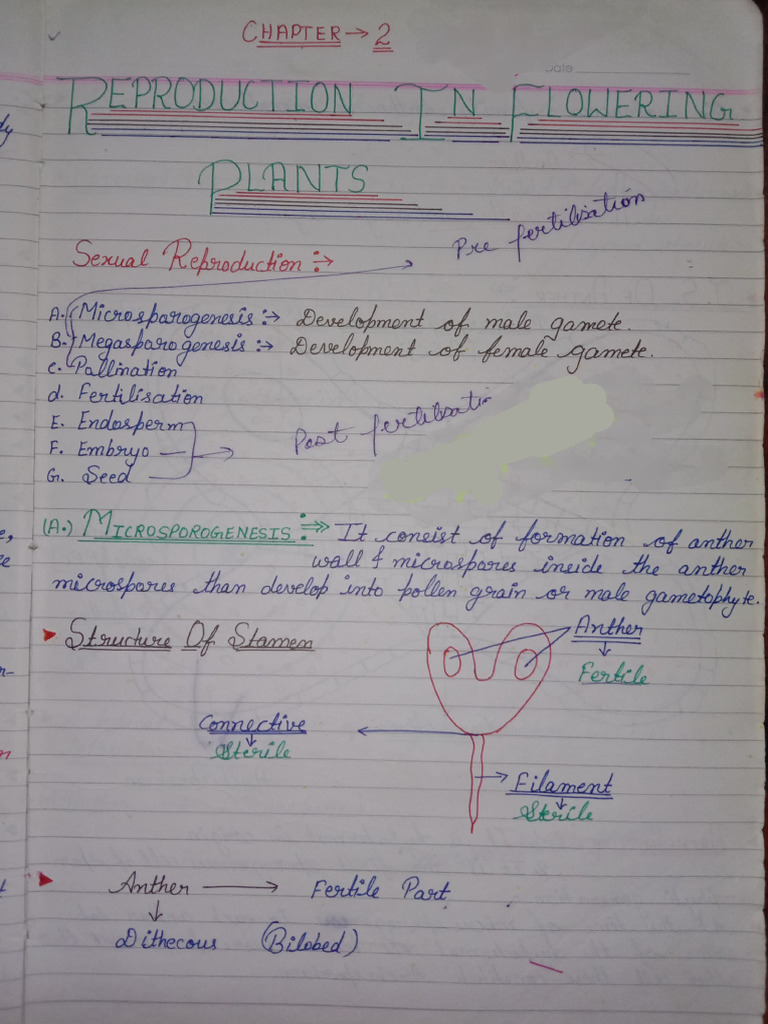 CHAPTER → 2
Date
REPRODUCTION IN FLOWERING
PLANTS
Pre fertilisation
Sexual Reproduction :→
A. Microsparogenesis :→ Development of male gamete.
B. Megasparogenesis :→ Development of female gamete.
C. Pallination
d. Fertilisation
E. Endosperm
Post fertilisatin
F. Embryo
G. Seed
(A.) MICROSPOROGENESIS :⇒ It consist of formation of anther
wall & microspares inside the anther
microspares than develop into pollen grain or male gametophyte.
Structure Of Stamen
Anther
↓
Fertile
Connective
↓
Sterile
Filament
↓
Sterile
Anther → Fertile Part
↓
Dithecous (Bilobed)